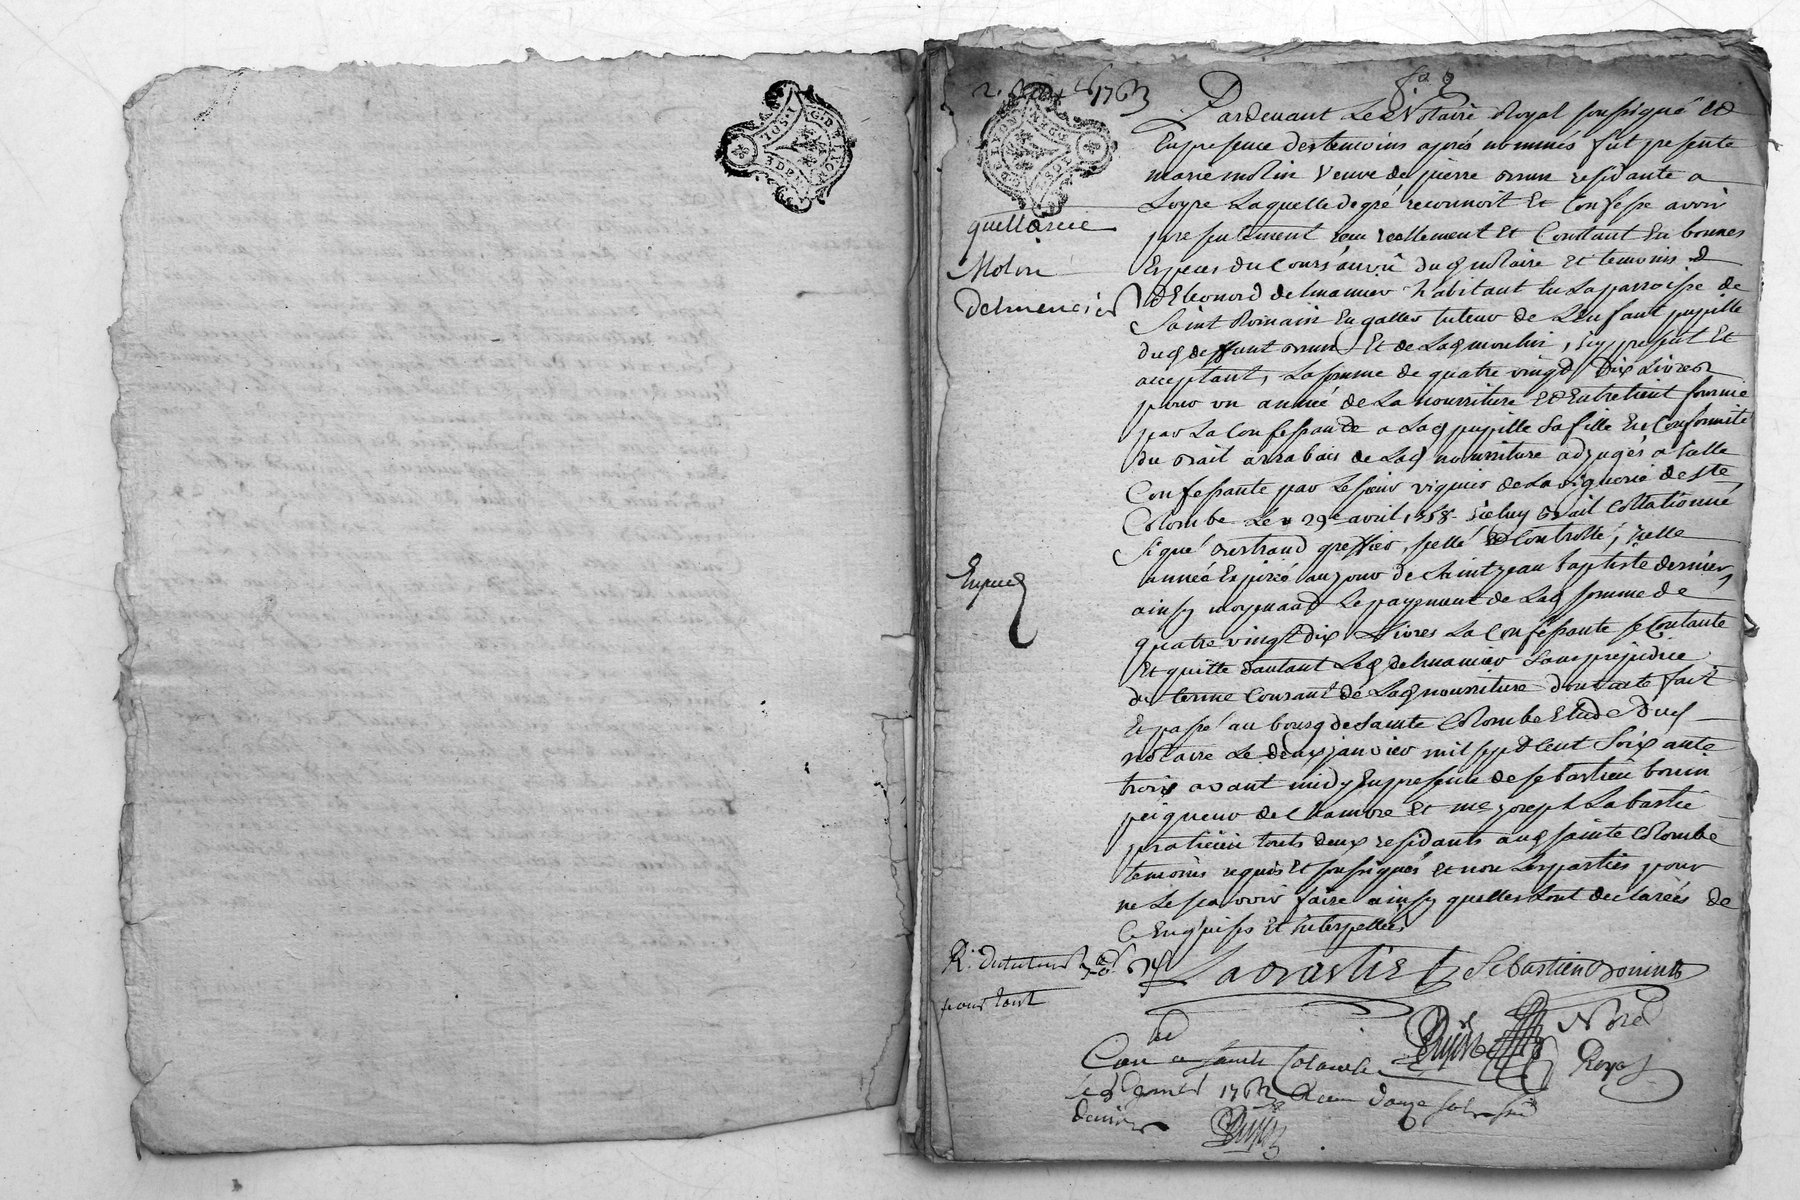 1763
Pardevant Le Notaire Royal soussigné Et
En presence des temoins aprés nommés fut presente
marie molin veuve de pierre orun residante a
Loyre Laquelle de gré reconnoit Et Confesse avoir
presentement reeu reellement Et Contant En bonnes
Especes du Cours au vû dud notaire Et temoins
D'Eleonord delmamier habitant En La parroisse de
Saint Romain En galles tuteur de L'enfant pupille
dud deffunt orun Et de Lad moulin, icy present Et
acceptant, La somme de quatre vingt Dix Livres
pour un année de La nourriture Et Entretient fournie
par La Confessante a Lad pupille Sa fille En Conformité
du Bail au rabais de Lad nourriture adjugés a Laditte
Confessante par Le sieur viguier de La viguerie de Ste
Colombe Le 29e avril 1758 icelluy Bail Collationné
signé greffier, scellé Et Controllé, icelle
année Expirée au jour de Saint jean baptiste dernier,
ainsy moyenant Le payement de Lad somme de
quatre vingt dix Livres La Confessante se Contante
Et quitte d'autant Led delmamier Sans prejudice
du terme Courant de Lad nourriture dont acte fait
Et passé au bourg de Sainte Colombe Etude dud
notaire Le deux janvier mil sept Cent Soixante
trois avant midy En presence de sebastien bonin
peigneur de Chanvre Et me joseph Labastie
praticien touts deux residants aud sainte Colombe
temoins requis Et soussignés et non Les parties pour
ne Le scavoir faire ainsy quelles Sont declarées de
Ce Enquises Et interpellées
quittance
Molin
Delmencier
Expied
Labastie
Sebastien Bonin
Nore
Royal
R. du tuteur
pour tout
Con a Sainte Colombe
Le 1763 Recu douze sols six
deniers